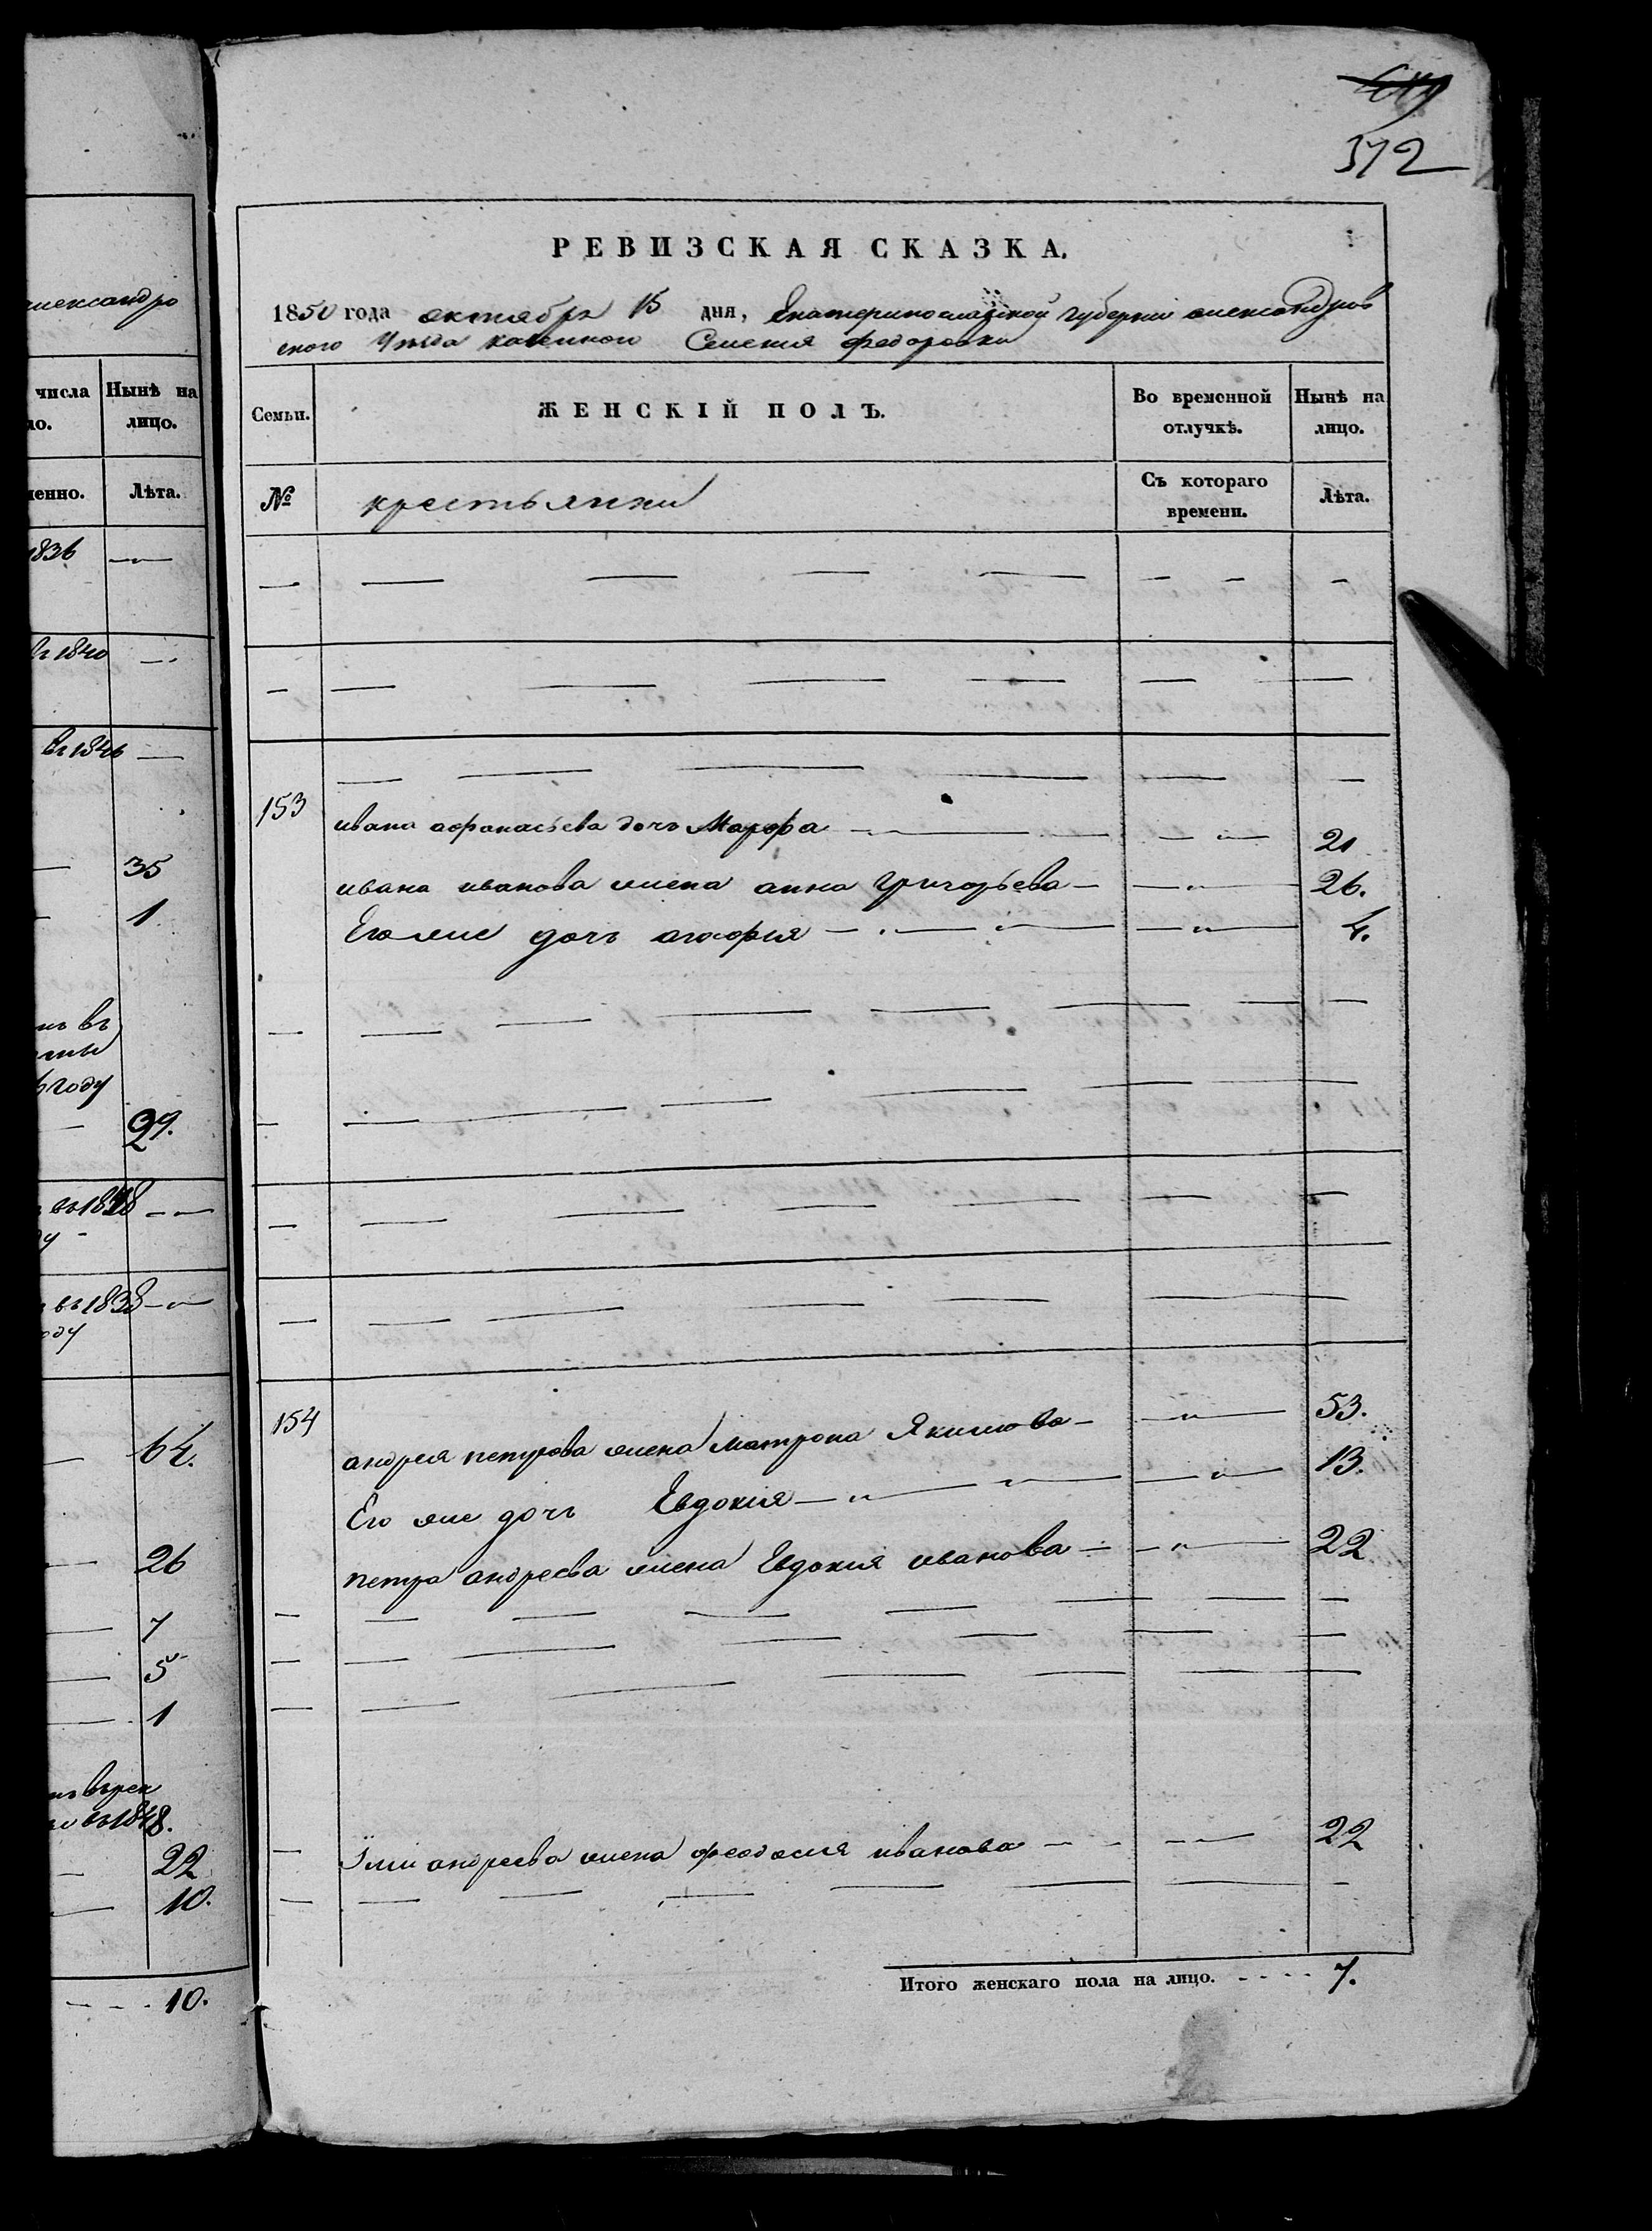 александро
числа Нынѣ на
ло. лицо.
менно. Лѣта.
1836
въ 1840
въ 1846
35
1
въ
году
29.
въ 1848
въ 1838
оду
64.
26
7
5
1
въ 1848.
22
10.
10.
372
РЕВИЗСКАЯ СКАЗКА.
1850 года октября 15 дня, Екатеринославской губернии александров
ского Уезда казенного Селения федоровки
Семьи. ЖЕНСКІЙ ПОЛЪ. Во временной отлучкѣ. Нынѣ на лицо.
№ крестьянки Съ котораго времени. Лѣта.
153 ивана афанасьева дочь Марфа 21
ивана иванова жена анна Григорьева 26.
Его же дочь агафия 4.
154 андрея петрова жена матрона Якимова 53.
Его же дочь Евдокия 13.
петра андреева жена Евдокия иванова 22
андреева жена феодосия иванова 22
Итого женскаго пола на лицо. 7.